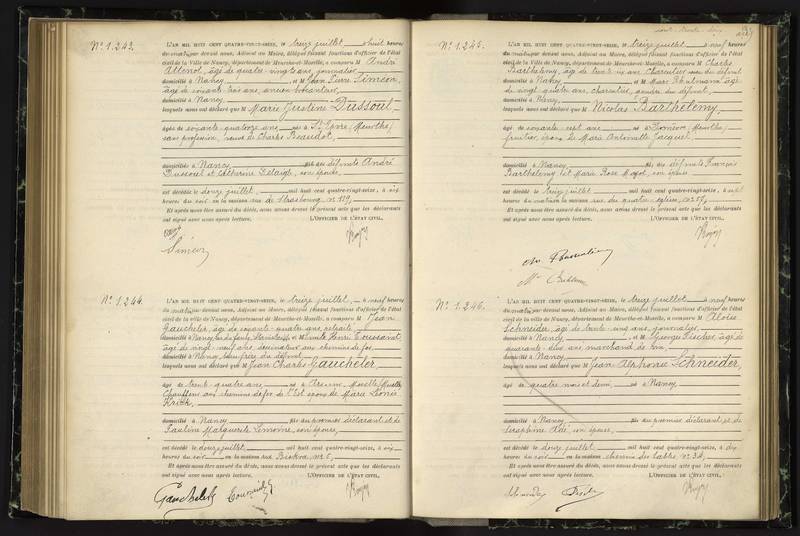 N° 1.243. L'AN MIL HUIT CENT QUATRE-VINGT-SEIZE, le treize juillet, à huit heures
du matin par devant nous, Adjoint au Maire, délégué faisant fonctions d'officier de l'état
civil de la ville de Nancy, département de Meurthe-et-Moselle, a comparu M André
âgé de quatre-vingts ans, journalier
domicilié à Nancy et M Jean Pierre Siméon,
âgé de soixante trois ans, ancien
domicilié à Nancy
lesquels nous ont déclaré que Marie Justine Dussoul
âgée de soixante quatorze ans née à St Epvre (Meurthe)
sans profession, veuve de Charles Beaudot,
domiciliée à Nancy fille des défunts André
Dussoul et Catherine Delaigle, son épouse,
est décédée le douze juillet mil huit cent quatre-vingt-seize, à six
heures du soir en la maison rue de Strasbourg, n° 119,
Et après nous être assuré du décès, nous avons dressé le présent acte que les déclarants
ont signé avec nous après lecture. L'OFFICIER DE L'ÉTAT CIVIL,
Siméon
N° 1.244. L'AN MIL HUIT CENT QUATRE-VINGT-SEIZE, le treize juillet, à neuf heures
du matin par devant nous, Adjoint au Maire, délégué faisant fonctions d'officier de l'état
civil de la ville de Nancy, département de Meurthe-et-Moselle, a comparu M Jean
Gaucheler, âgé de soixante quatre ans, retraité
domicilié à Nancy, et M Emile Henri Toussaint,
âgé de vingt neuf ans, dessinateur aux chemins de fer
domicilié à Nancy, beau frère du défunt
lesquels nous ont déclaré que M Jean Charles Gaucheler,
âgé de trente quatre ans né à (Moselle)
Chauffeur aux chemins de fer de l'Est époux de Marie Léonie
domicilié à Nancy fils du premier déclarant et de
Pauline Marguerite Lemoine, son épouse,
est décédé le douze juillet, mil huit cent quatre-vingt-seize, à six
heures du soir en la maison rue Biskra, n° 6,
Et après nous être assuré du décès, nous avons dressé le présent acte que les déclarants
ont signé avec nous après lecture. L'OFFICIER DE L'ÉTAT CIVIL,
Gaucheler
N° 1.245. L'AN MIL HUIT CENT QUATRE-VINGT-SEIZE, le treize juillet à neuf heures
du matin par devant nous, Adjoint au Maire, délégué faisant fonctions d'officier de l'état
civil de la ville de Nancy, département de Meurthe-et-Moselle, a comparu M Charles
Barthélemy, âgé de trente six ans, Charcutier, fils du défunt
domicilié à Nancy et M Marc âgé
de vingt quatre ans, charcutier, gendre du défunt,
domicilié à Nancy
lesquels nous ont déclaré que Nicolas Barthélemy,
âgé de soixante sept ans né à (Meurthe)
fruitier, époux de Marie Antoinette Jacquel,
domicilié à Nancy fils des défunts François
Barthélemy et Marie Rose son épouse
est décédé le treize juillet mil huit cent quatre-vingt-seize, à sept
heures du matin en la maison rue des quatre églises, n° 57,
Et après nous être assuré du décès, nous avons dressé le présent acte que les déclarants
ont signé avec nous après lecture. L'OFFICIER DE L'ÉTAT CIVIL,
N° 1.246. L'AN MIL HUIT CENT QUATRE-VINGT-SEIZE, le treize juillet à neuf heures
du matin par devant nous, Adjoint au Maire, délégué faisant fonctions d'officier de l'état
civil de la ville de Nancy, département de Meurthe-et-Moselle, a comparu M Aloïse
Schneider, âgé de trente cinq ans, journalier
domicilié à Nancy et M Georges Fischer, âgé de
quarante deux ans, marchand de vin,
domicilié à Nancy
lesquels nous ont déclaré que Jean Alphonse Schneider,
âgé de quatre mois et demi, né à Nancy
domicilié à Nancy fils du premier déclarant et de
Séraphine son épouse,
est décédé le douze juillet mil huit cent quatre-vingt-seize, à dix
heures du soir en la maison chemin des Sables, n° 34,
Et après nous être assuré du décès, nous avons dressé le présent acte que les déclarants
ont signé avec nous après lecture. L'OFFICIER DE L'ÉTAT CIVIL,